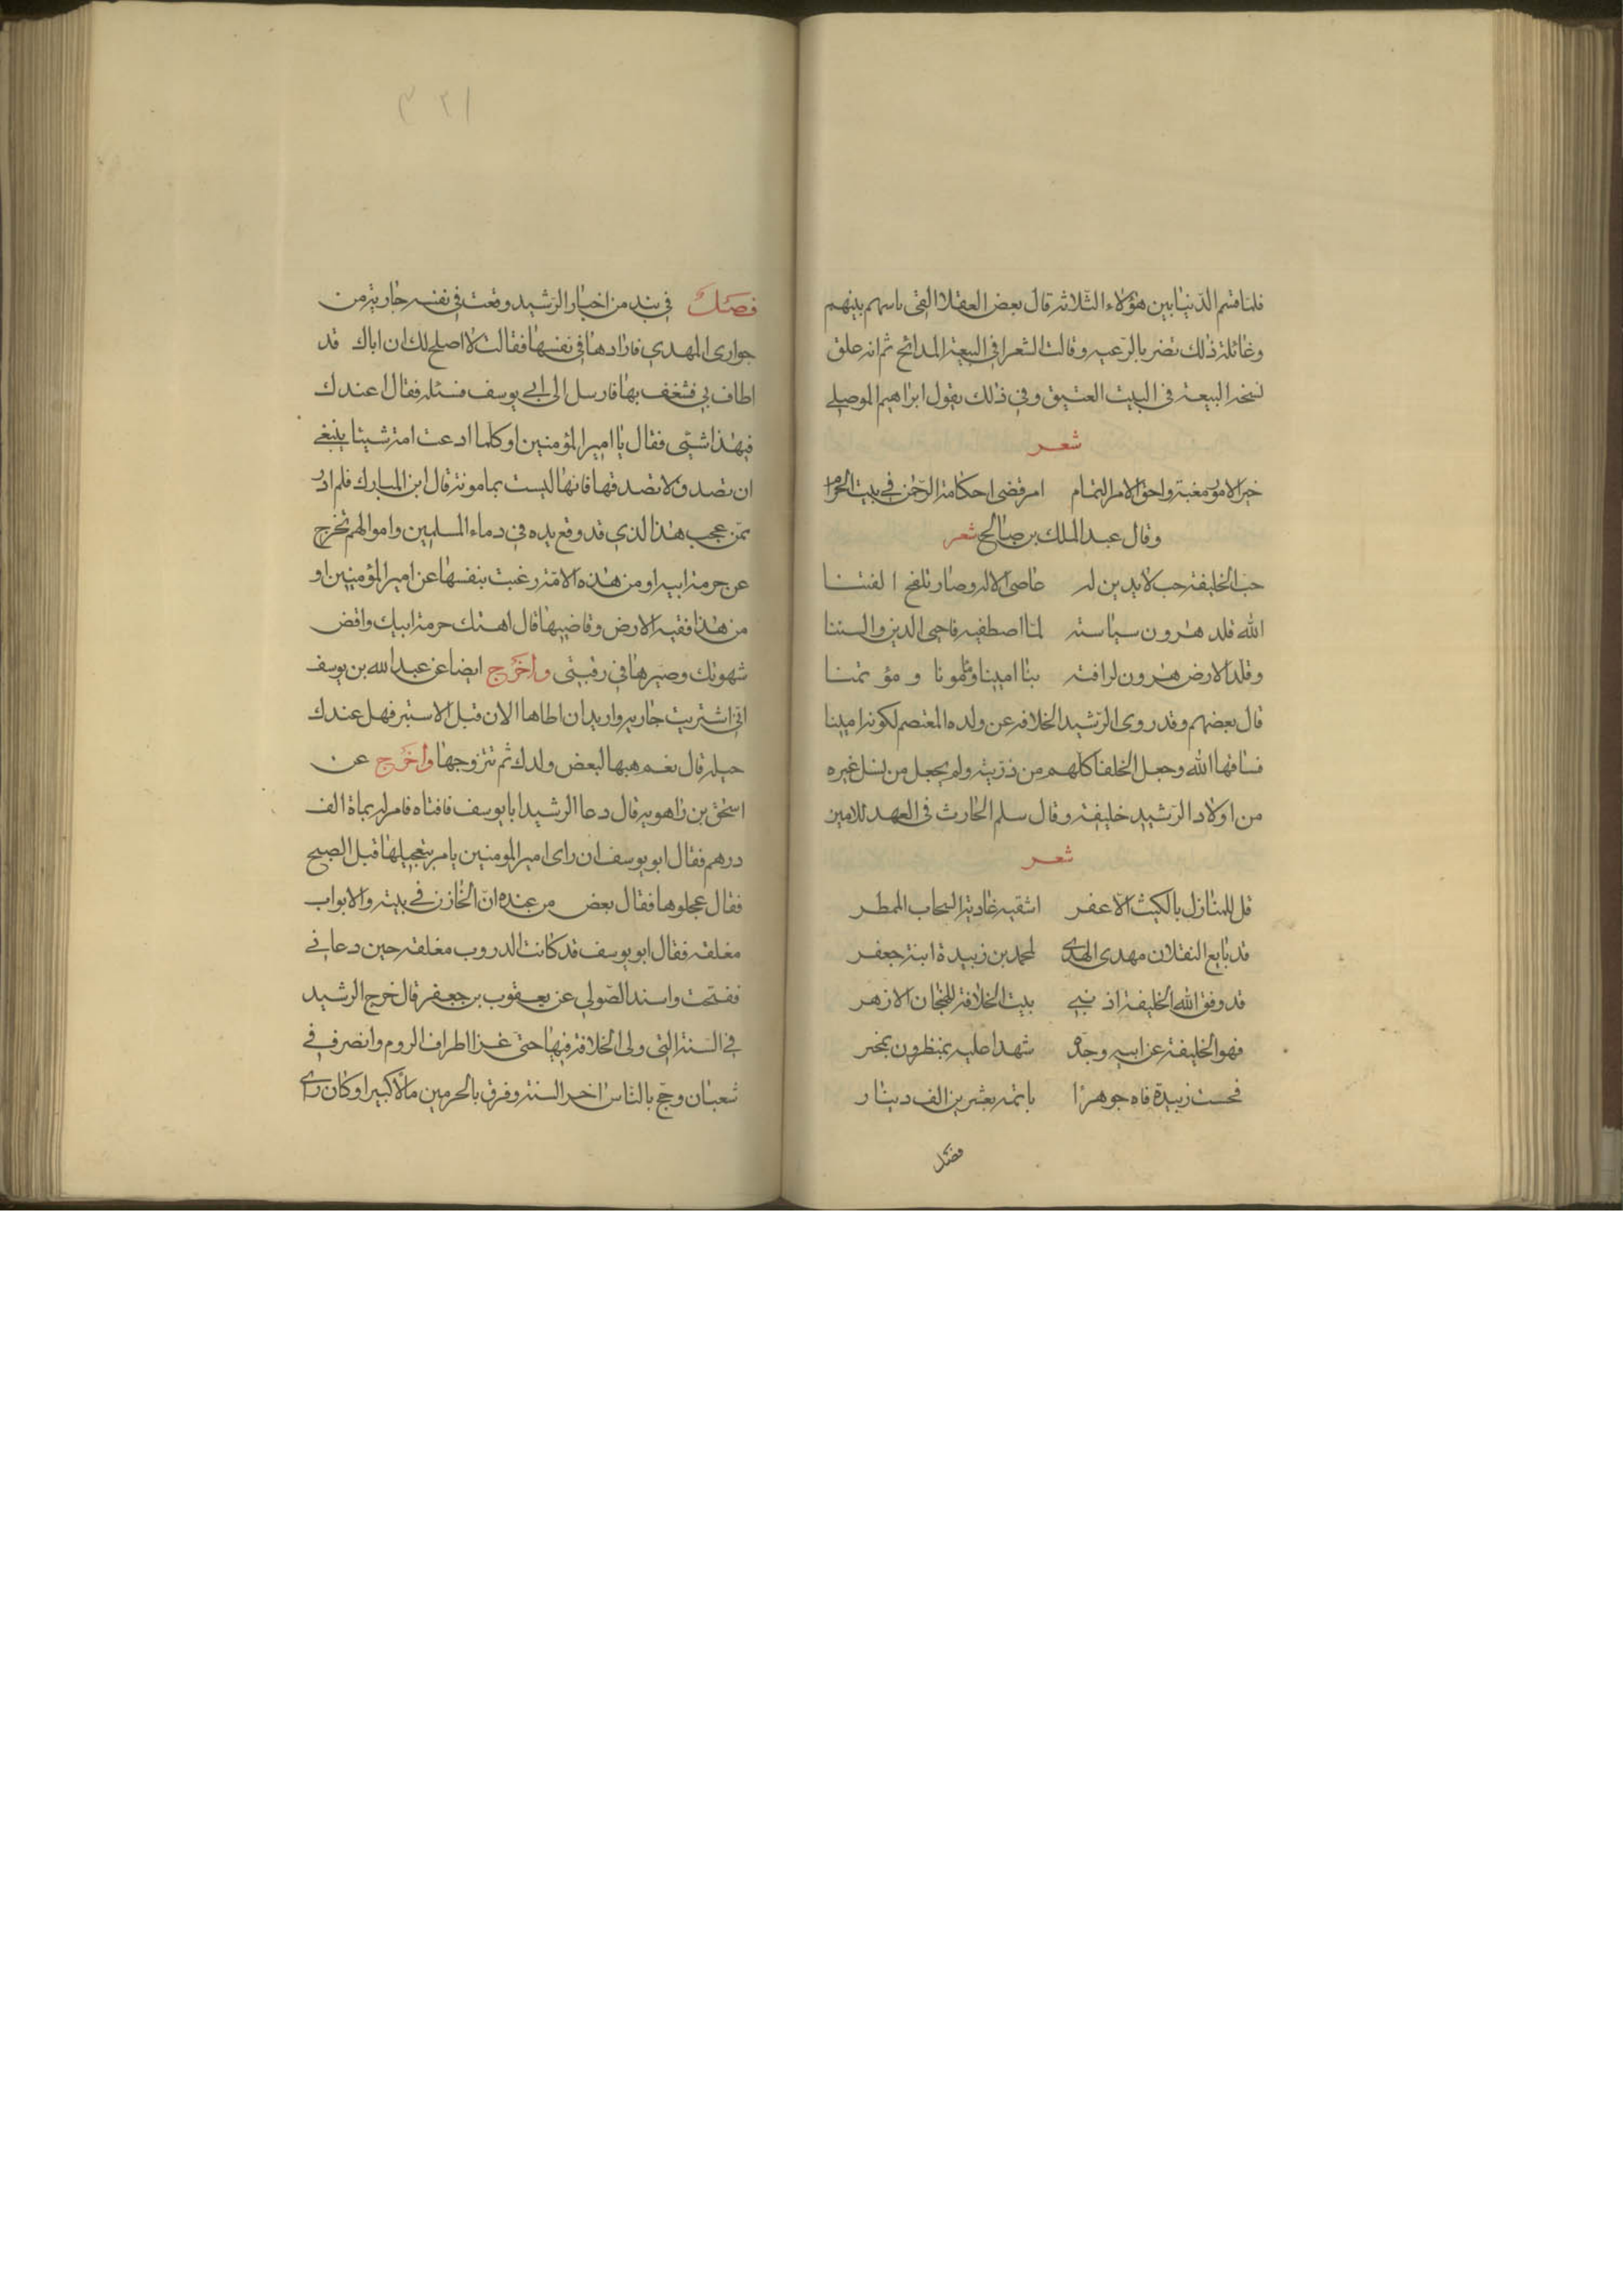 فلما قسم الدنيا بين هؤلاء الثلاثة قال بعض العقلا القى باسهم بينهم
وغائلة ذلك تضر بالرعيه وقالت الشعرا في البيعة المدائح ثم انه علق
نسخه البيعة في البيت العتيق وفي ذلك يقول ابراهيم الموصلي
شعر
خير الامور مغبة واحق الامر التمام امر قضى احكامه الرحمن في بيت الحرام
وقال عبد الملك بن صالح شعر
حب الخليفة حب لا يدين له عاصى الاله وصار تلقح الفتنا
الله قلد هرون سياسته لما اصطفيه فاحيى الدين والسننا
وقلد الارض هرون لرافته بنا امينا ومامونا ومؤتمنا
قال بعضهم وقد روى الرشيد الخلافه عن ولده المعتصم لكونه اميا
فساقها الله وجعل الخلفا كلهم من ذريته ولم يجعل من نسل غيره
من اولاد الرشيد خليفة وقال سلم الحارث في العهد للامين
شعر
قل للمنازل بالكيث الاعفر اسقيه غادية السحاب الممطر
قد بايع الثقلان مهدى الهدى لمحمد بن زبيدة ابنة جعفر
قد وفق الله الخليفة اذ بني بيت الخلافة للهجان الازهر
فهو الخليفة عن ابيه وجده شهدا عليه بمنظر ون بمخبر
فحست زبيدة فاه جوهرا باتمه بعشرين الف دينار
فصل
١٢٣
فصل في نبد من اخبار الرشيد وقعت في نفسه جارية من
جوارى المهدي فارادها في نفسها فقالت لا اصلح لك ان اباك قد
اطاف بي فشغف بها فارسل الى ابي يوسف فسئله فقال اعندك
فيهذا شيئ فقال يا امير المؤمنين اوكلما ادعت امة شيئا ينبغي
ان تصدق لا تصدقها فانها ليست بمامونة قال ابن المبارك فلم ادر
ممن عجب هذا لذي قد وقع يده في دماء المسلمين واموالهم تخرج
عن حرمة ابيه او من هذه الامة رغبت بنفسها عن امير المؤمنين او
من هذا فقيه الارض وقاضيها قال اهتك حرمة ابيك واقض
شهوتك وصيرها في رقبتي واخرج ايضا عن عبد الله بن يوسف
اني اشتريت جاريه واريد ان اطاها الان قبل الاستبر فهل عندك
حيله قال نعم هبها لبعض ولدك ثم تتزوجها واخرج عن
اسحق بن راهويه قال دعا الرشيد ابا يوسف فافتاه فامر له بماة الف
درهم فقال ابو يوسف ان راى امير المومنين يامر بتعجيلها قبل الصبح
فقال عجلوها فقال بعض من عنده ان الخازن في بيته والابواب
مغلقه فقال ابو يوسف قد كانت الدروب مغلقه حين دعاني
ففتحت واسند الصولي عن يعقوب بن جعفر قال خرج الرشيد
في السنة التي ولى الخلافة فيها حتى غزا اطراف الروم وانصرف في
شعبان وحج بالناس اخر السنة وفرق بالحرمين مالا كبيرا وكان راى